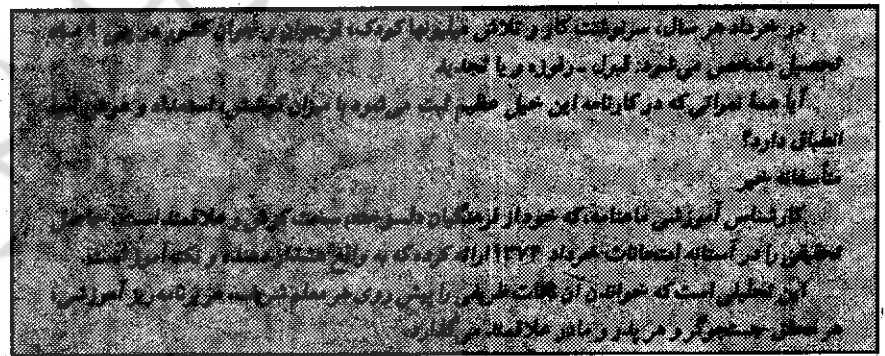 در خرداد هر سال، سرنوشت کار و تلاش میلیونها کودک، نوجوان و جوان کشور در پی ۹ ماه
تحصیل مشخص می‌شود: قبول - رفوزه و یا تجدید.
آیا همهٔ نمراتی که در کارنامه این خیل عظیم ثبت می‌شود با میزان کوشش، استعداد و
انطباق دارد؟
متأسفانه خیر.
کارشناس آموزشی ماهنامه، که خود از فرهنگیان دلسوخته، سخت‌کوش و علاقمند است، حاصل
تحقیقی را در آستانه امتحانات خرداد ۱۳۷۴ ارائه کرده که به واقع هشدار دهنده و نکته‌آموز است.
این تحلیلی است که خواندن آن نکات ظریفی را پیش روی هر معلم شریف، هر برنامه‌ریز آموزشی،
هر محقق جستجوگر و هر پدر و مادر علاقمند می‌گذارد.